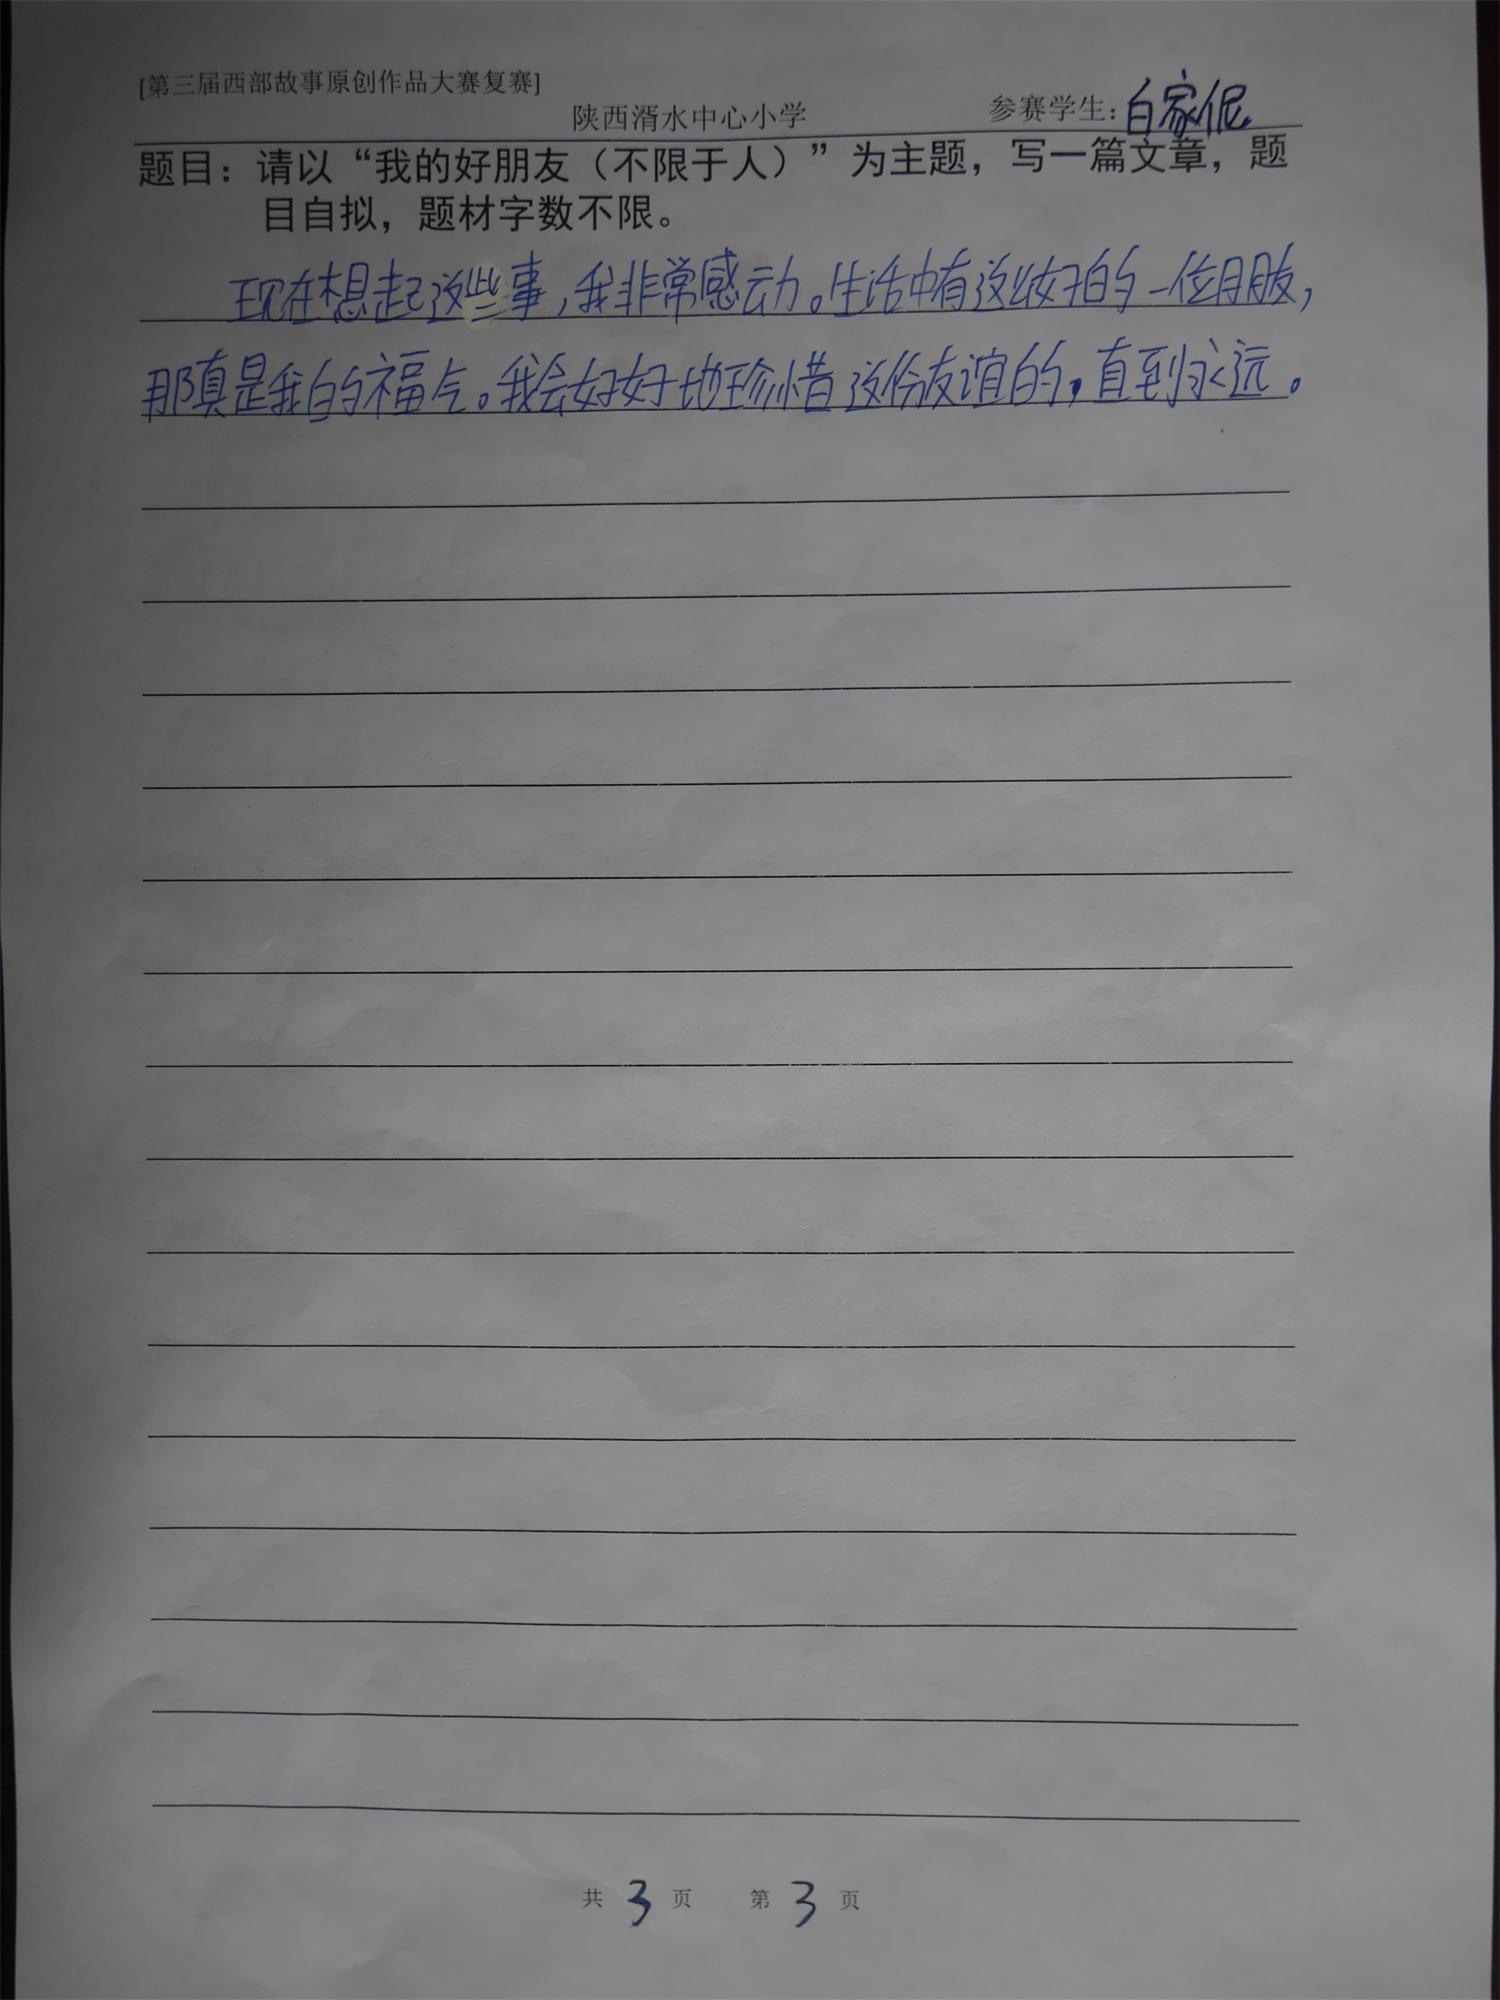 [第三届西部故事原创作品大赛复赛]
陕西湑水中心小学 参赛学生：白家伲
题目：请以“我的好朋友（不限于人）”为主题，写一篇文章，题
目自拟，题材字数不限。
现在想起这些事，我非常感动。生活中有这么好的一位朋友，
那真是我的福气。我会好好地珍惜这份友谊的，直到永远。
共 3 页 第 3 页